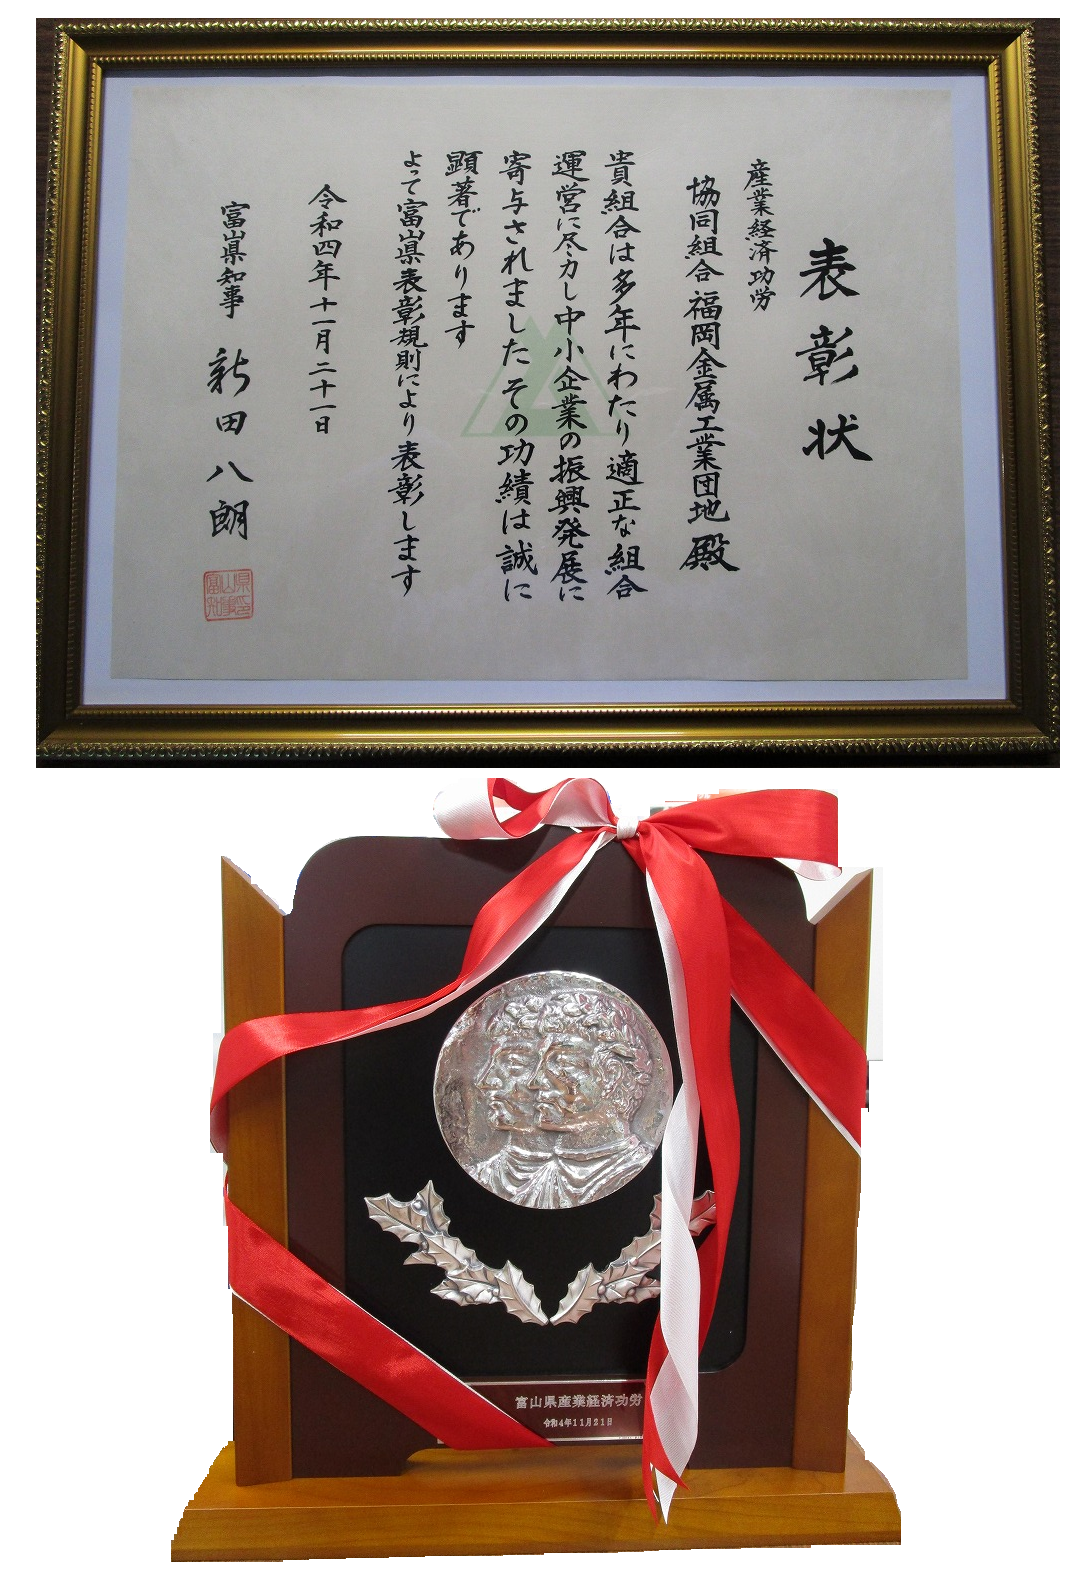 表彰状
産業経済功労
協同組合 福岡金属工業団地 殿
貴組合は多年にわたり適正な組合
運営に尽力し中小企業の振興発展に
寄与されました その功績は誠に
顕著であります
よって富山県表彰規則により表彰します
令和四年十一月二十一日
富山県知事 新田八朗
富山県知事之印
富山県産業経済功労
令和4年11月21日